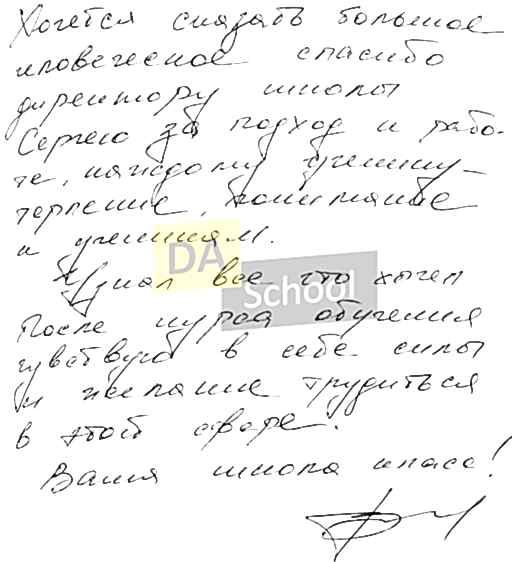 Хочется сказать большое
человеческое спасибо
директору школы
Сергею за подход к рабо-
те, каждому ученику_
терпение, внимание
к ученикам.
Узнал все что хотел
После курса обучения
чувствую в себе силы
и желание трудиться
в этой сфере.
Ваша школа класс!
DA
School